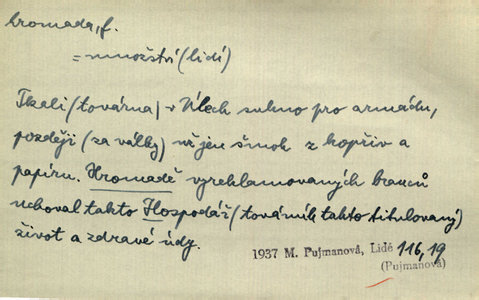 hromada, f.
= množství (lidí)
Tkali (továrna) v Úlech sukno pro armádu,
později (za války) už jen šmok z kopřiv a
papíru. Hromadě vyreklamovaných branců
uchoval takto Hospodář (továrník takto titulovaný)
život a zdravé údy.
1937 M. Pujmanová, Lidé 116, 19
(Pujmanová)